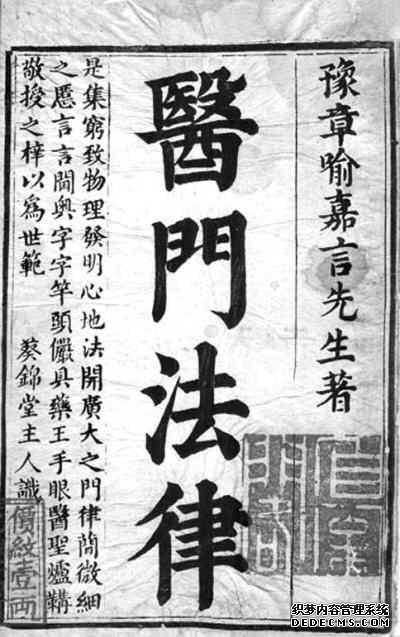 豫章喻嘉言先生著
醫門法律
是集窮致物理發明心地法開廣大之門律簡微細
之慝言言閫奧字字竿頭儼具藥王手眼醫聖爐鞲
敬授之梓以爲世範 葵錦堂主人識
價紋壹兩
织梦内容管理系统
DEDECMS.COM